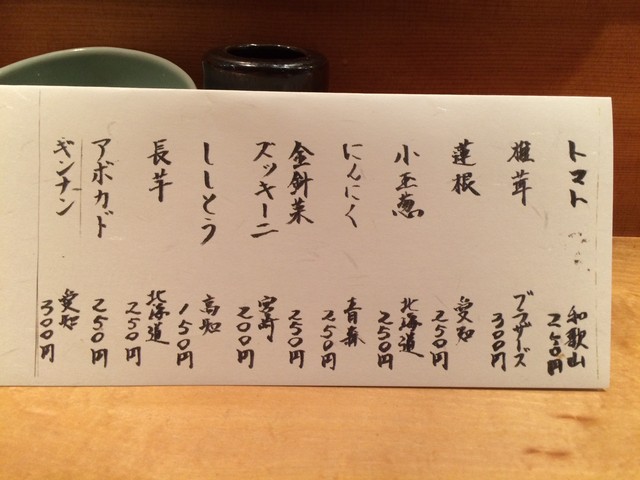 トマト
和歌山
250円
椎茸
ブラザーズ
300円
蓮根
愛知
250円
小玉葱
北海道
250円
にんにく
青森
250円
金針菜
250円
ズッキーニ
宮崎
200円
ししとう
高知
150円
長芋
北海道
250円
アボカド
250円
ギンナン
愛知
300円